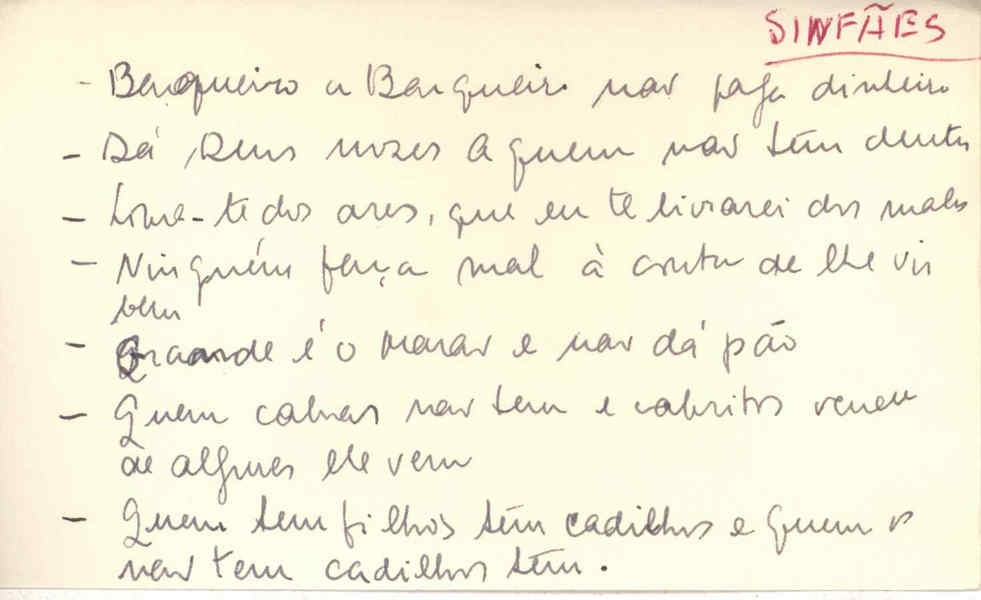 SINFÃES
- Barqueiro a Barqueiro nao paga dinheiro
- Dá Deus nozes a quem nao têm dentes
- Livra-te dos ares, que eu te livrarei dos males
- Ninguém faça mal à conta de lhe vir
bem
- Grande é o Marao e nao dá pão
- Quem cabras nao tem e cabritos vende
de algures lhe vem
- Quem tem filhos têm cadilhos e quem os
nao tem cadilhos têm.